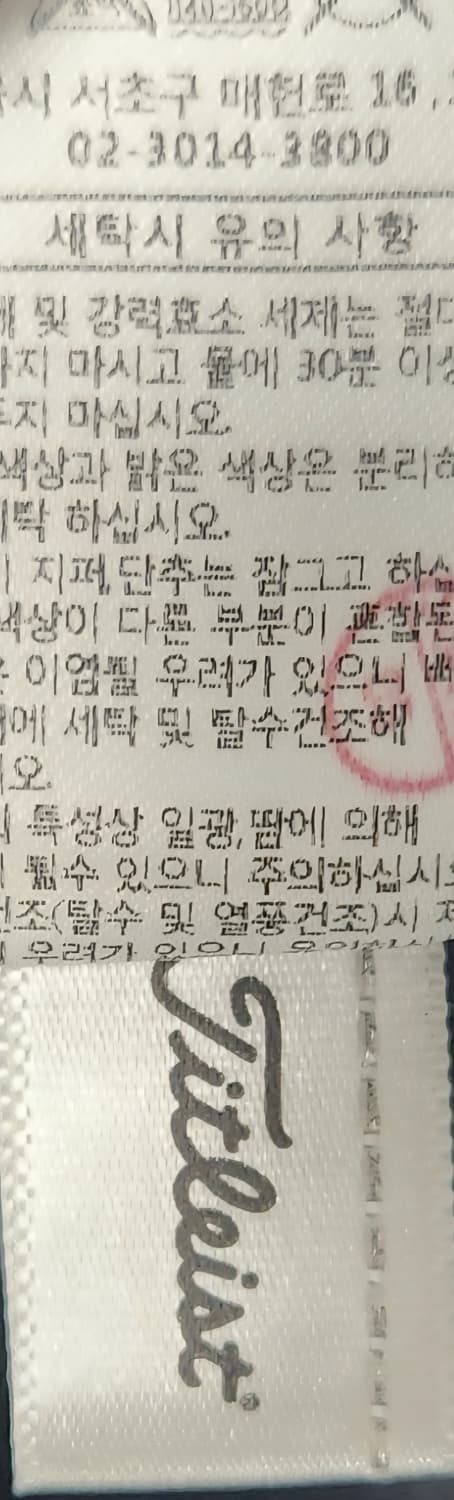 시 서초구 매헌로 16,
02-3014-3800
세탁시 유의 사항
및 강력효소 세제는 절대
마시고 물에 30분 이상
마십시오.
색상과 밝은 색상은 분리하
하십시오.
지퍼,단추는 잠그고 하십
색상이 다른 부분이 혼합된
이염될 우려가 있으니
세탁 및 탈수건조해
오.
특성상 일광,땀에 의해
될수 있으니 주의하십시오
건조(탈수 및 열풍건조)시
우려가 있으니
Titleist®